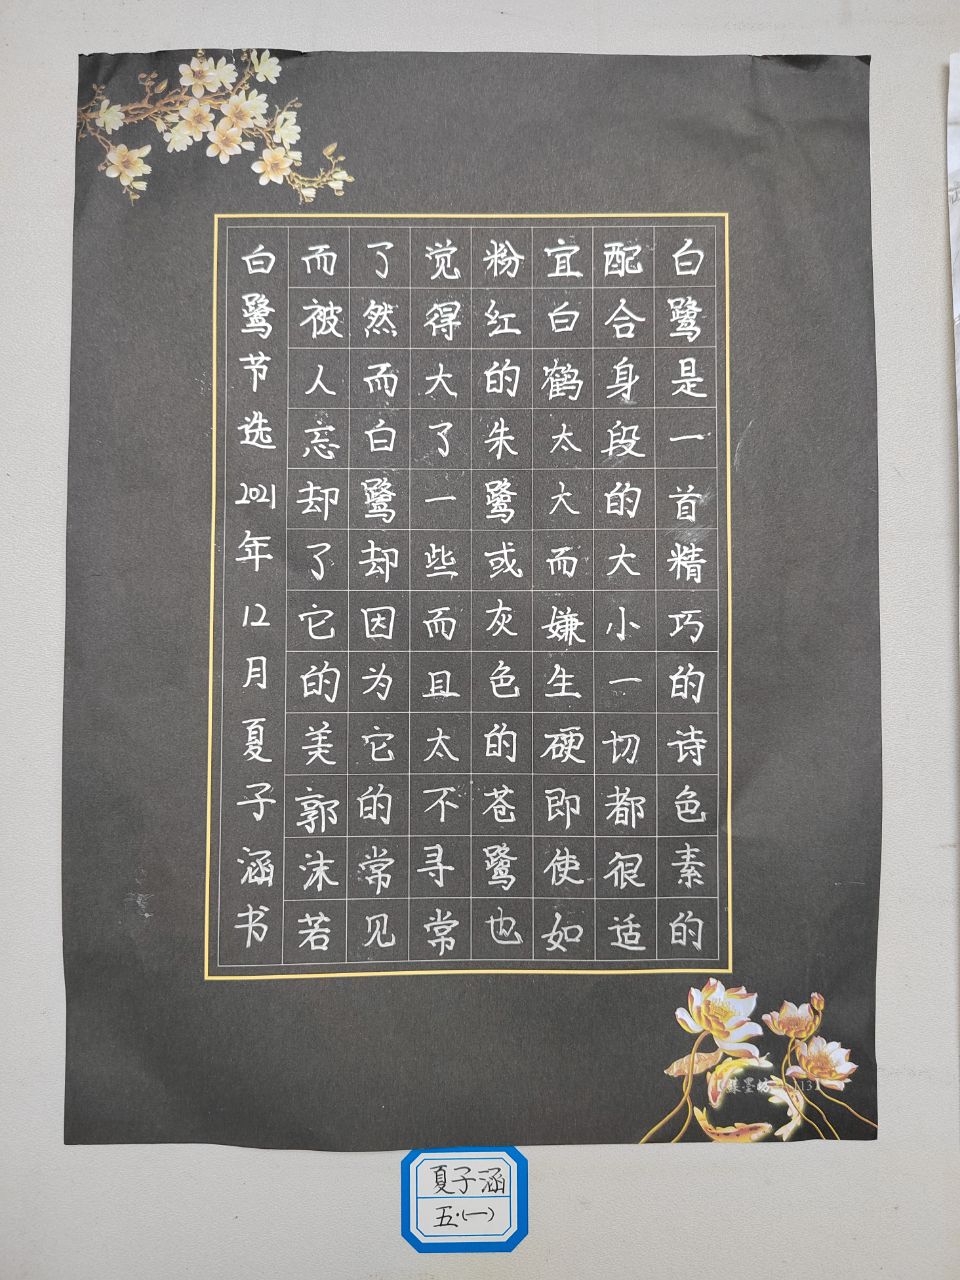 白鹭是一首精巧的诗色素的
配合身段的大小一切都很适
宜白鹤太大而嫌生硬即使如
粉红的朱鹭或灰色的苍鹭也
觉得大了一些而且太不寻常
了然而白鹭却因为它的常见
而被人忘却了它的美郭沫若
白鹭节选2021年12月夏子涵书
夏子涵
五·(一)